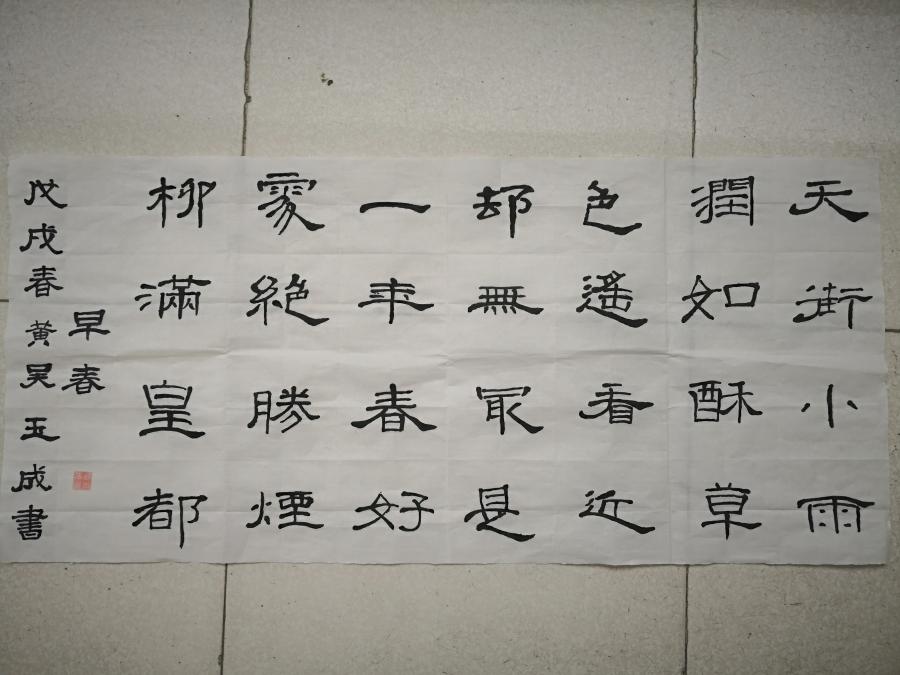 天街小雨
潤如酥草
色遙看近
却無冣是
一年春好
處絕勝煙
柳滿皇都
早春
戊戌春黄吴玉成書